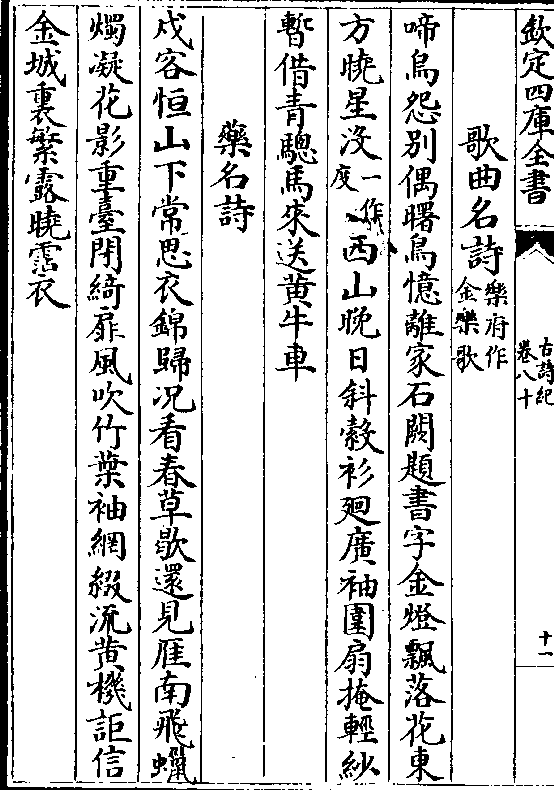 欽定四庫全書
古詩紀
卷八十
十一
歌曲名詩樂府作
金樂歌
啼烏怨別偶曙烏憶離家石闕題書字金燈飄落花東
方曉星没一作
度西山晚日斜縠衫廻廣袖團扇掩輕紗
暫借青驄馬來送黄牛車
藥名詩
戍客恒山下常思衣錦歸况看春草歇還見雁南飛蠟
燭凝花影重臺閉綺扉風吹竹葉袖網綴流黄機詎信
金城裏繁露曉霑衣